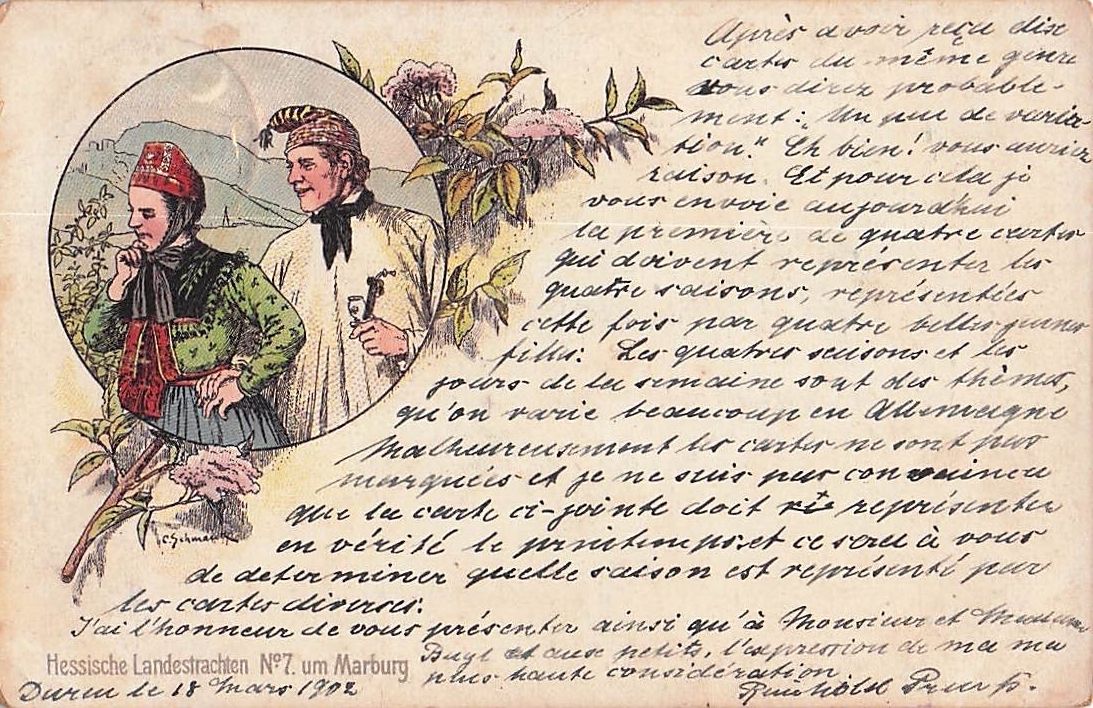 Après avoir reçu dix
cartes du même genre
vous direz probable-
ment: „Un peu de varia-
tion." Eh bien! vous auriez
raison. Et pour cela je
vous envoie aujourd'hui
la première de quatre cartes
qui doivent représenter les
quatre saisons, représentées
cette fois par quatre belles jeunes
filles: Les quatres saisons et les
jours de la semaine sont des thèmes,
qu'on varie beaucoup en Allemagne
Malheureusement les cartes ne sont pas
marquées et je ne suis pas convaincu
que la carte ci-jointe doit représenter
en vérité le printemps et ce sera à vous
de determiner quelle saison est représenté par
les cartes diverses.
J'ai l'honneur de vous présenter ainsi qu'à Monsieur et Madame
et aux petits, l'expression de ma
plus haute considération
Hessische Landestrachten No 7. um Marburg
Duren le 18 Mars 1902
C. Schmidt